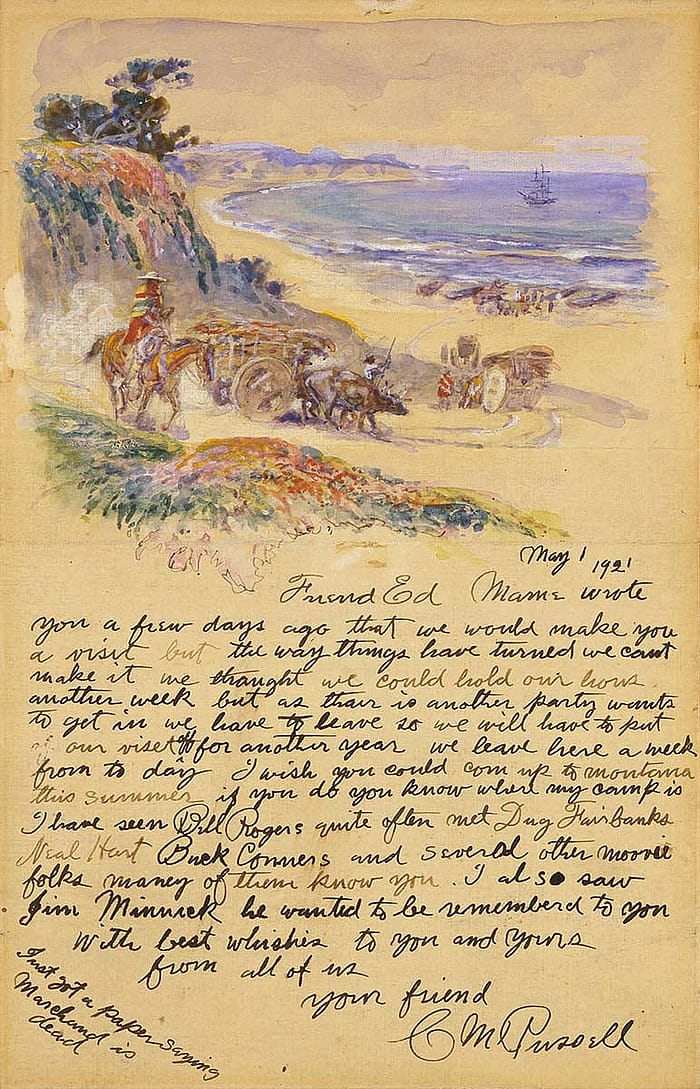 May 1 1921
Friend Ed Mame wrote
you a few days ago that we would make you
a visit but the way things have turned we cant
make it we thaught we could hold our hous
another week but as thair is another party wants
to get in we have to leave so we will have to put
of our viset for another year we leave here a week
from to day I wish you could com up to montana
this summer if you do you know where my camp is
I have seen Bill Rogers quite often met Dug Fairbanks
Neal Hart Buck Conners and several other moovie
folks maney of them know you. I also saw
Jim Minnick he wanted to be rememberd to you
With best whishis to you and yours
from all of us
your friend
CM Russell
Just got a paper saying
Marchand is
dead